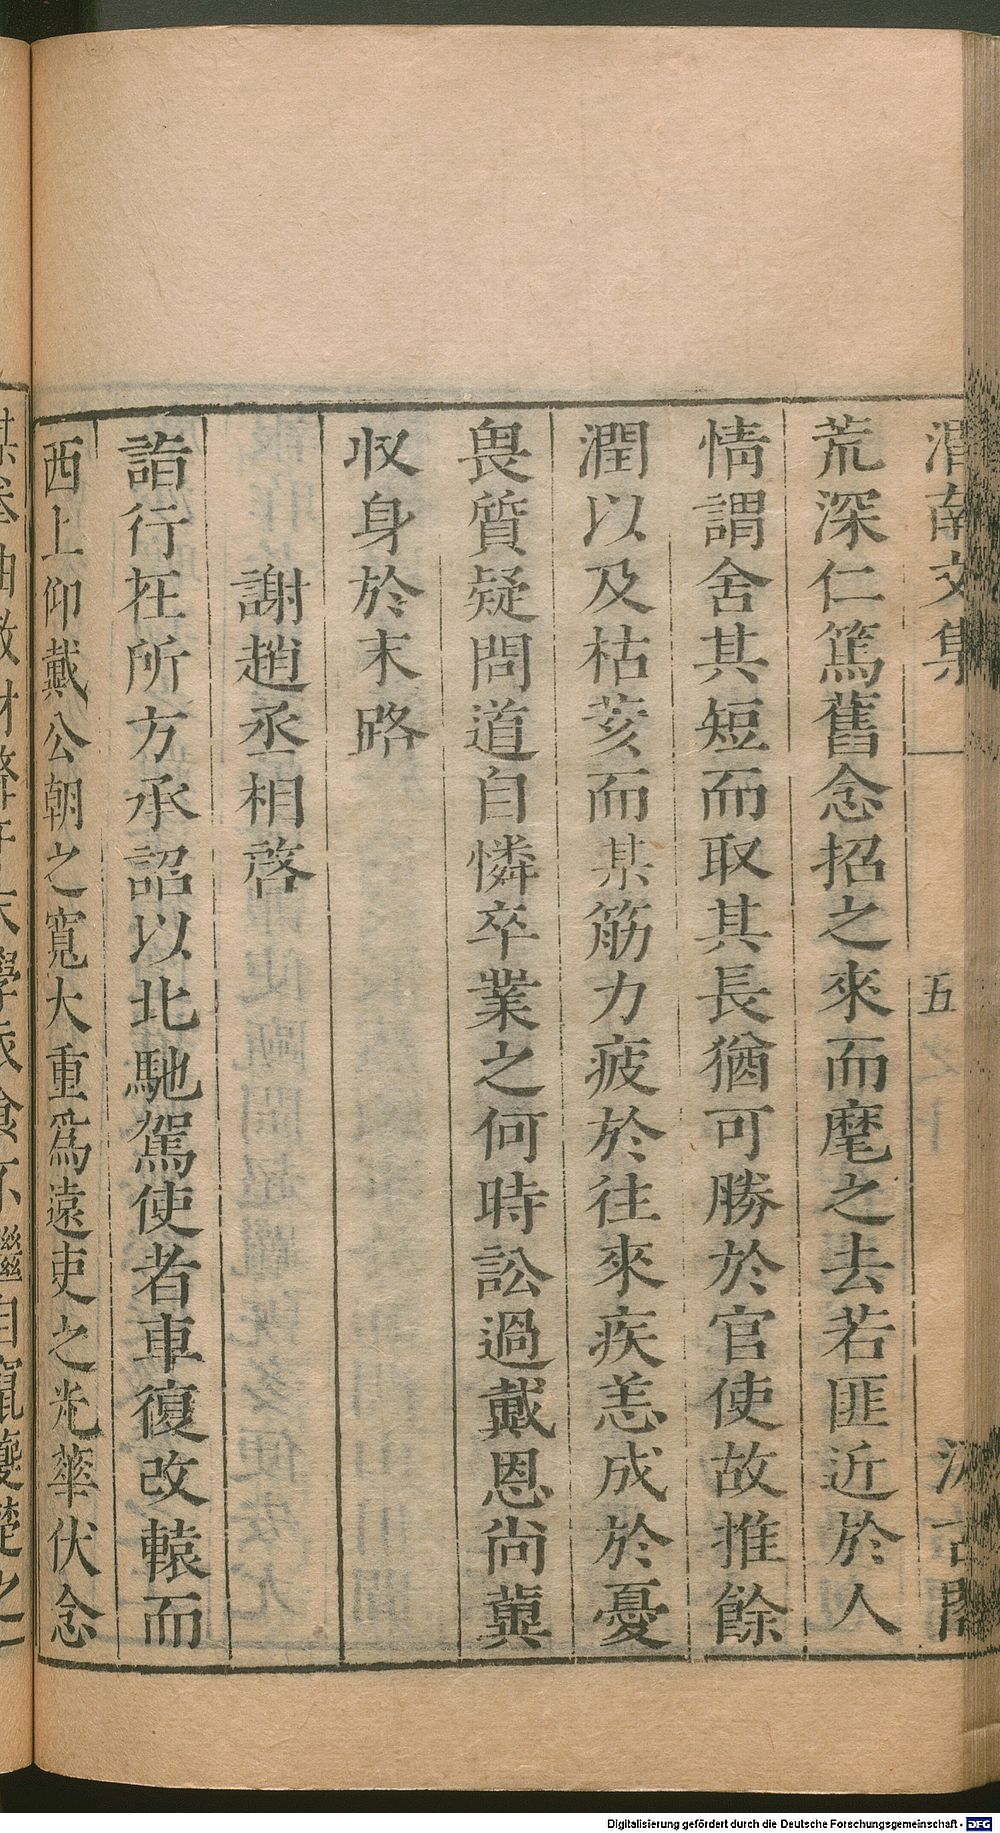 渭南文集 五 汲古閣
荒深仁篤舊念招之來而麾之去若匪近於人
情謂舍其短而取其長猶可勝於官使故推餘
潤以及枯荄而某筋力疲於往來疾恙成於憂
畏質疑問道自憐卒業之何時訟過戴恩尚冀
収身於末路
謝趙丞相啓
詣行在所方承詔以北馳駕使者車復改轅而
西上仰戴公朝之寬大重爲遠吏之光華伏念
Digitalisierung gefördert durch die Deutsche Forschungsgemeinschaft - DFG